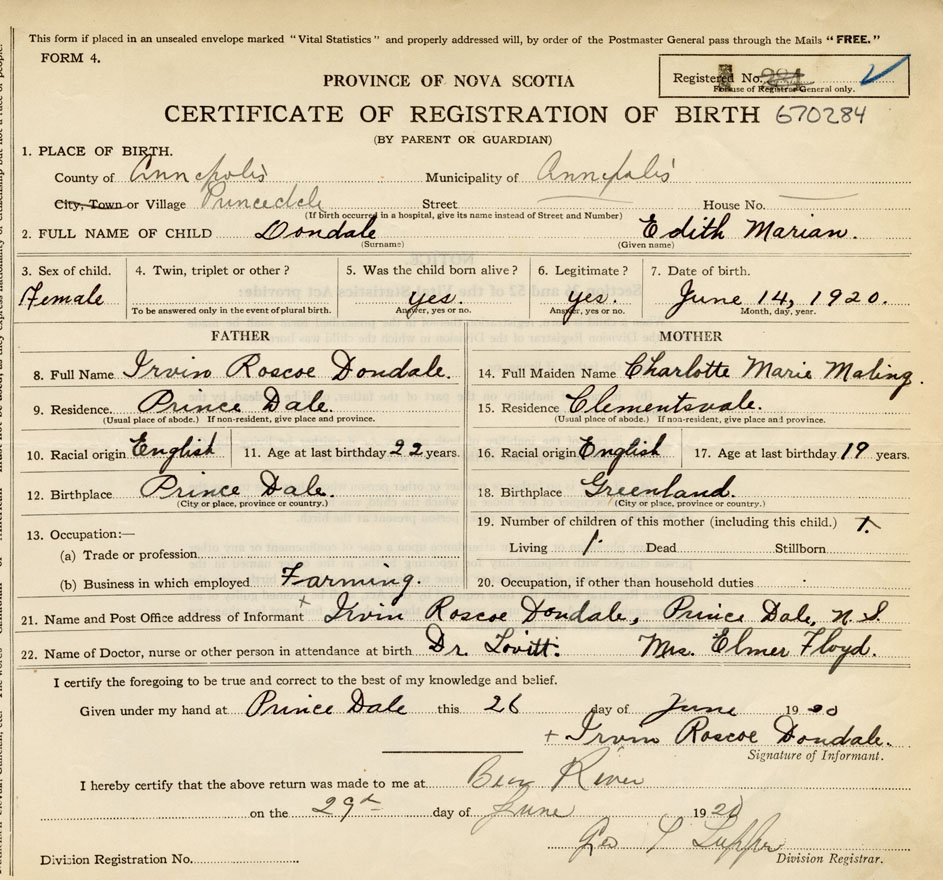 This form if placed in an unsealed envelope marked "Vital Statistics" and properly addressed will, by order of the Postmaster General pass through the Mails "FREE."
FORM 4.
PROVINCE OF NOVA SCOTIA
Registered No.
For use of Registrar General only.
CERTIFICATE OF REGISTRATION OF BIRTH 670284
(BY PARENT OR GUARDIAN)
1. PLACE OF BIRTH.
County of Annapolis Municipality of Annapolis
City, Town or Village Princedale Street House No.
(If birth occurred in a hospital, give its name instead of Street and Number)
2. FULL NAME OF CHILD Dondale Edith Marian.
(Surname) (Given name)
3. Sex of child. 4. Twin, triplet or other? 5. Was the child born alive? 6. Legitimate? 7. Date of birth.
Female yes. yes. June 14, 1920.
To be answered only in the event of plural birth. Answer, yes or no. Answer, yes or no. Month, day, year.
FATHER MOTHER
8. Full Name Irvin Roscoe Dondale. 14. Full Maiden Name Charlotte Marie Maling.
9. Residence. Prince Dale. 15. Residence Clementsvale.
(Usual place of abode.) If non-resident, give place and province. (Usual place of abode.) If non-resident, give place and province.
10. Racial origin English 11. Age at last birthday 22 years. 16. Racial origin English 17. Age at last birthday 19 years.
12. Birthplace Prince Dale. 18. Birthplace Greenland.
(City or place, province or country.) (City or place, province or country.)
13. Occupation:— 19. Number of children of this mother (including this child.) 1.
(a) Trade or profession Living 1 Dead Stillborn
(b) Business in which employed Farming. 20. Occupation, if other than household duties
21. Name and Post Office address of Informant x Irvin Roscoe Dondale, Prince Dale, N.S.
22. Name of Doctor, nurse or other person in attendance at birth Dr. Lovitt. Mrs. Elmer Floyd.
I certify the foregoing to be true and correct to the best of my knowledge and belief.
Given under my hand at Prince Dale this 26 day of June 1920
+ Irvin Roscoe Dondale.
Signature of Informant.
I hereby certify that the above return was made to me at Bear River
on the 29th day of June 1920
Geo
Division Registration No. Division Registrar.